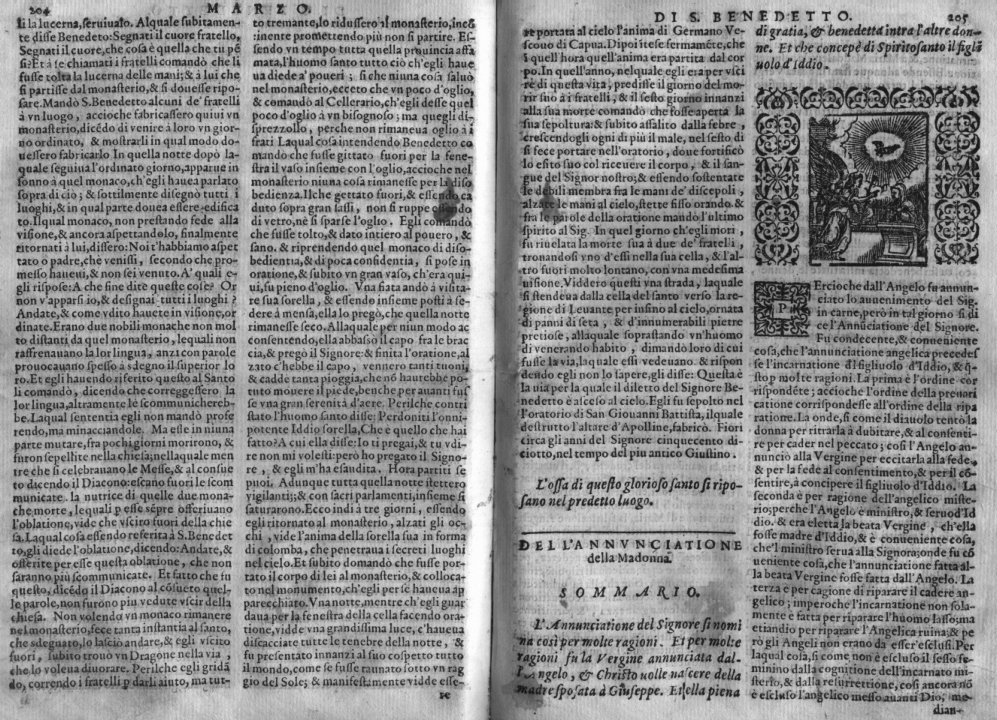 204
MARZO.
li la lucerna, seruiualo. Al quale subitamen-
te disse Benedeto: Segnati il cuore fratello,
Segnati il cuore, che cosa è quella che tu pē
si? Et à se chiamati i fratelli comandò che li
fusse tolta la lucerna delle mani; & à lui che
si partisse dal monasterio, & si douesse ripo-
sare. Mandò S. Benedetto alcuni de' fratelli
à vn luogo, accioche fabricassero quiui vn
monasterio, dicēdo di venire à loro vn gior-
no ordinato, & mostrarli in qual modo do-
uessero fabricarlo. In quella notte dopò la-
quale seguiua l'ordinato giorno, apparue in
sonno à quel monaco, ch'egli hauea parlato
sopra di ciò; & sottilmente disegnò tutti i
luoghi, & in qual parte douea essere edifica
to. Il qual monaco, non prestando fede alla
visione, & ancora aspettandolo, finalmente
ritornati à lui, dissero: Noi t'habbiamo aspet
tato ò padre, che venissi, secondo che pro-
messo haueui, & non sei venuto. A' quali e-
gli rispose: A che fine dite queste cose? Or
non v'apparsi io, & designai tutti i luoghi?
Andate, & come vdito hauete in visione, or
dinate. Erano due nobili monache non mol
to distanti da quel monasterio, lequali non
raffrenauano la lor lingua, anzi con parole
prouocauano spesso à sdegno il superior lo
ro. Et egli hauendo riferito questo al Santo
li comandò, dicendo che correggessero la
lor lingua, altramente le scommunicareb-
be. Laqual sententia egli non mandò profe
rendo, ma minacciandole. Ma esse in niuna
parte mutare, fra pochi giorni morirono, &
furon sepellite nella chiesa; nella quale men
tre che si celebrauano le Messe, & al consue
to dicendo il Diacono: escano fuori le scom
municate. la nutrice di quelle due mona-
che morte, lequali p esse sēpre offeriuano
l'oblatione, vide che vscito fuori della chie
sa. Laqual cosa essendo referita à S. Benedet
to, gli diede l'oblatione, dicendo: Andate, &
offerite per esse questa oblatione, che non
saranno piu scommunicate. Et fatto che fu
questo, dicēdo il Diacono al cōsueto quel-
le parole, non furono piu vedute vscir della
chiesa. Non volendo vn monaco rimanere
nel monasterio, fece tanta instantia al santo,
che sdegnato, lo lasciò andare, & egli vscito
fuori, subito trouò vn Dragone nella via,
che lo voleua diuorare. Perilche egli gridā
do, correndo i fratelli p darli aiuto, ma tut-
to tremante, lo ridussero al monasterio, incō
inente promettendo più non si partire. Es-
sendo vn tempo tutta quella prouincia affa
mata, l'huomo santo tutto ciò ch'egli haue
ua diede a' poueri; si che niuna cosa saluò
nel monasterio, ecceto che vn poco d'oglio,
& comandò al Cellerario, ch'egli desse quel
poco d'oglio à vn bisognoso; ma quegli di-
sprezzollo, perche non rimaneua oglio à i
frati Laqual cosa intendendo Benedetto co
mandò che fusse gittato fuori per la fene-
stra il vaso insieme con l'oglio, accioche nel
monasterio niuna cosa rimanesse per la diso
bedienza. Ilche gettato fuori, & essendo ca
duto sopra gran sassi, non si ruppe essendo
di vetro, ne si sparse l'oglio. Egli comandò
che fusse tolto, & dato intiero al pouero, &
sano. & riprendendo quel monaco di diso-
bedientia, & di poca confidentia, si pose in
oratione, & subito vn gran vaso, ch'era qui-
ui, su pieno d'oglio. Vna fiata andò à visita-
re sua sorella, & essendo insieme posti à se-
dere à mensa, ella lo pregò, che quella notte
rimanesse seco. Allaquale per niun modo ac
consentendo, ella abbassò il capo fra le brac
cia, & pregò il Signore: & finita l'oratione, al
zato c'hebbe il capo, vennero tanti tuoni,
& cadde tanta pioggia, che nō hauerebbe po-
tuto mouere il piede, benche per auanti fus
se vna gran serenità d'aere. Perilche contri
stato l'huomo santo disse: Perdoniti l'onni-
potente Iddio sorella, Che è quello che hai
fatto? A cui ella disse: Io ti pregai, & tu vdi-
re non mi volesti: però ho pregato il Signo-
re, & egli m'ha esaudita. Hora partiti se
puoi. Adunque tutta quella notte stettero
vigilanti; & con sacri parlamenti, insieme si
saturarono. Ecco indi à tre giorni, essendo
egli ritornato al monasterio, alzati gli oc-
chi, vide l'anima della sorella sua in forma
di colomba, che penetraua i secreti luoghi
nel cielo. Et subito domandò che fusse por-
tato il corpo di lei al monasterio, & colloca-
to nel monumento, ch'egli per se haueua ap
parecchiato. Vna notte, mentre ch'egli guar
daua per la fenestra della cella facendo ora-
tione, vidde vna grandissima luce, c'haueua
discacciate tutte le tenebre della notte, &
li presentato innanzi al suo cospetto tutto
il mondo, come se fusse raunato sotto vn rag
gio del Sole; & manifestamente vidde esse-
re
DI S. BENEDETTO.
205
re portata al cielo l'anima di Germano Ve-
scouo di Capua. Dipoi itese fermamēte, che
i quell'hora quell'anima era partita dal cor
po. In quell'anno, nelquale egli era per vsci
re di questa vita, predisse il giorno del mo-
rir suo à i fratelli, & il sesto giorno innanzi
alla sua morte comandò che fosse aperta la
sua sepoltura: & subito assalito dalla febre,
crescendogli ogni di più il male, nel sesto dì
si fece portare nell'oratorio, doue fortificò
lo esito suo col riceuere il corpo, & il san-
gue del Signor nostro; & essendo sostentate
le debili membra fra le mani de' discepoli,
alzate le mani al cielo, stette fisso orando. &
fra le parole della oratione mandò l'ultimo
spirito al Sig. In quel giorno ch'egli morì,
fu riuelata la morte sua à due de' fratelli,
tronandosi vno d'essi nella sua cella, & l'al-
tro fuori molto lontano, con vna medesima
uisione. Viddero questi vna strada, laquali
si stendeua dalla cella del santo verso la re-
gione di Leuante per insino al cielo, ornata
di panni di seta, & d'innumerabili pierre
pretiose, allaquale soprastando vn'huomo
di venerando habito, dimandò loro di cui
fusse la via, laquale essi vedeuano. & rispon
dendo egli non lo sapere, gli disse: Questa è
la uia per la quale il diletto del Signore Be-
nedetto è asceso al cielo. Egli fu sepolto nel
l'oratorio di San Giouanni Battista, ilquale
destrutto l'altare d'Apolline, fabricò. Fiori
circa gli anni del Signore cinquecento di-
ciotto, nel tempo del piu antico Giustino.
L'ossa di questo glorioso santo si ripo-
sano nel predetto luogo.
DELL'ANNVNCIATIONE
della Madonna.
SOMMARIO.
L'Annunciatione del Signore si nomi
na così per molte ragioni. Et per molte
ragioni fu la Vergine annunciata dal-
l'Angelo, & Christo uolle nascere della
madre sposata à Giuseppe. Et ella piena
di gratia, & benedetta intra l'altre don-
ne. Et che concepè di Spirito santo il figli
uolo d'Iddio.
P
Ercioche dall'Angelo fu annun-
ciato lo auuenimento del Sig.
in carne, però in tal giorno si di
ce l'Annūciatione del Signore.
Fu condecente, & conueniente
cosa, che l'annunciatione angelica precedes
se l'incarnatione d'l figliuolo d'Iddio, & q̃-
sto p molte ragioni. La prima è l'ordine cor
rispondēte; accioche l'ordine della preuari
catione corrispondesse all'ordine della ripa
ratione. La onde, si come il diauolo tentò la
donna per ritrarla à dubitare, & al consenti-
re per cader nel peccato; così l'Angelo an-
nunciò alla Vergine per eccitarla alla fede,
& per la fede al consentimento, & per il cō-
sentire, à concipere il figliuolo d'Iddio. La
seconda è per ragione dell'angelico miste-
rio; perche l'Angelo è ministro, & seruo d'Id
dio. & era eletta la beata Vergine, ch'ella
fosse madre d'Iddio, & è conueniente cosa,
che'l ministro serua alla Signora; onde fu cō
ueniente cosa, che l'annunciatione fatta al-
la beata Vergine fosse fatta dall'Angelo. La
terza e per cagione di riparare il cadere an-
gelico; imperoche l'incarnatione non sola-
mente è fatta per riparare l'huomo lasso; ma
etiandio per riparare l'Angelica ruina; & pe
rò gli Angeli non erano da esser'esclusi. Per
laqual cosa, si come non è escluso il sesso fe-
minino dalla cognitione dell'incarnato mi-
sterio, & dalla resurrettione, così ancora nō
è escluso l'angelico messo auanti Dio, me-
dian-